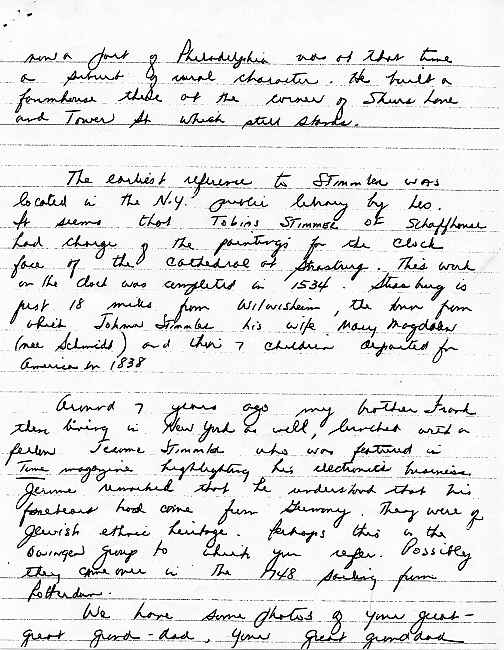 now a part of Philadelphia was at that time
a suburb of rural character. He built a
farmhouse there at the corner of Shurs Lane
and Tower St which still stands.
The earliest reference to Stimmler was
located in the N.Y. public library by Leo.
It seems that Tobias Stimmer of Schaffhouse
had charge of the paintings for the clock
face of the Cathedral at Strasburg. This work
on the clock was completed in 1534. Strasburg is
just 18 miles from Wilwisheim, the town from
which Johann Stimmler his wife Mary Magdalen
(nee Schmidt) and their 7 children departed for
America in 1838
Around 7 years ago my brother Frank
then living in New York as well, lunched with a
person Jerome Stimmler who was featured in
Time magazine highlighting his electronics business.
Jerome remarked that he understood that his
forebears had come from Germany. They were of
Jewish ethnic heritage. Perhaps this is the
group to which you refer. Possibly
they came over in the 1748 sailing from
Rotterdam.
We have some photos of your great-
great grand-dad, your great granddad